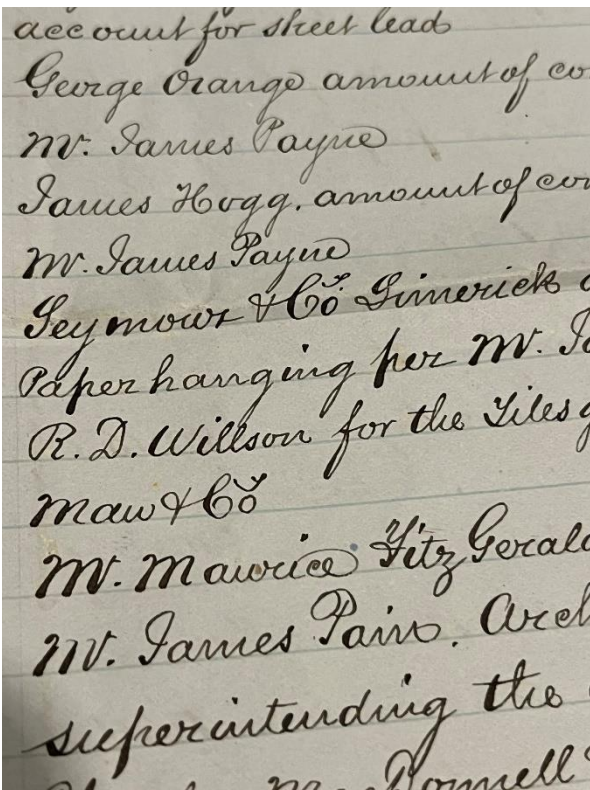 account for sheet lead
George Orange amount of co
Mr. James Payne
James Hogg. amount of con
Mr. James Payne
Seymour & Co Limerick
Paper hanging per Mr. Ja
R. D. Willson for the Tiles
Maw & Co
Mr. Maurice FitzGerald
Mr. James Pain. Arch
superintending the
McDonnell